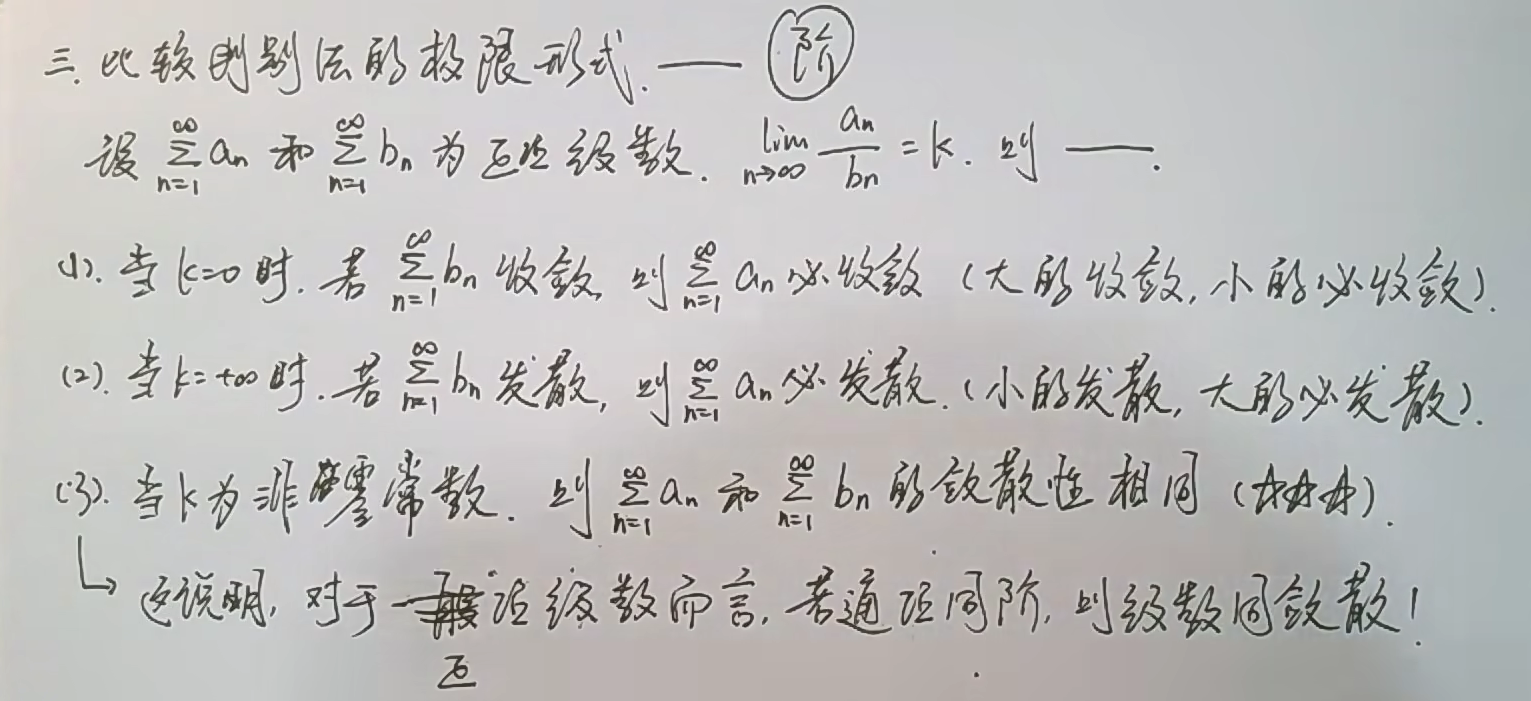 三. 比较判别法的极限形式. —— 阶
设 $\sum_{n=1}^{\infty} a_n$ 和 $\sum_{n=1}^{\infty} b_n$ 为正项级数. $\lim_{n\to\infty} \frac{a_n}{b_n} = k$. 则 ——.
(1). 当 k=0 时. 若 $\sum_{n=1}^{\infty} b_n$ 收敛, 则 $\sum_{n=1}^{\infty} a_n$ 必收敛 (大的收敛, 小的必收敛).
(2). 当 k=+∞ 时. 若 $\sum_{n=1}^{\infty} b_n$ 发散, 则 $\sum_{n=1}^{\infty} a_n$ 必发散. (小的发散, 大的必发散).
(3). 当 k 为非零常数. 则 $\sum_{n=1}^{\infty} a_n$ 和 $\sum_{n=1}^{\infty} b_n$ 的敛散性相同 (☆☆☆).
↳ 这说明, 对于正项级数而言, 若通项同阶, 则级数同敛散!